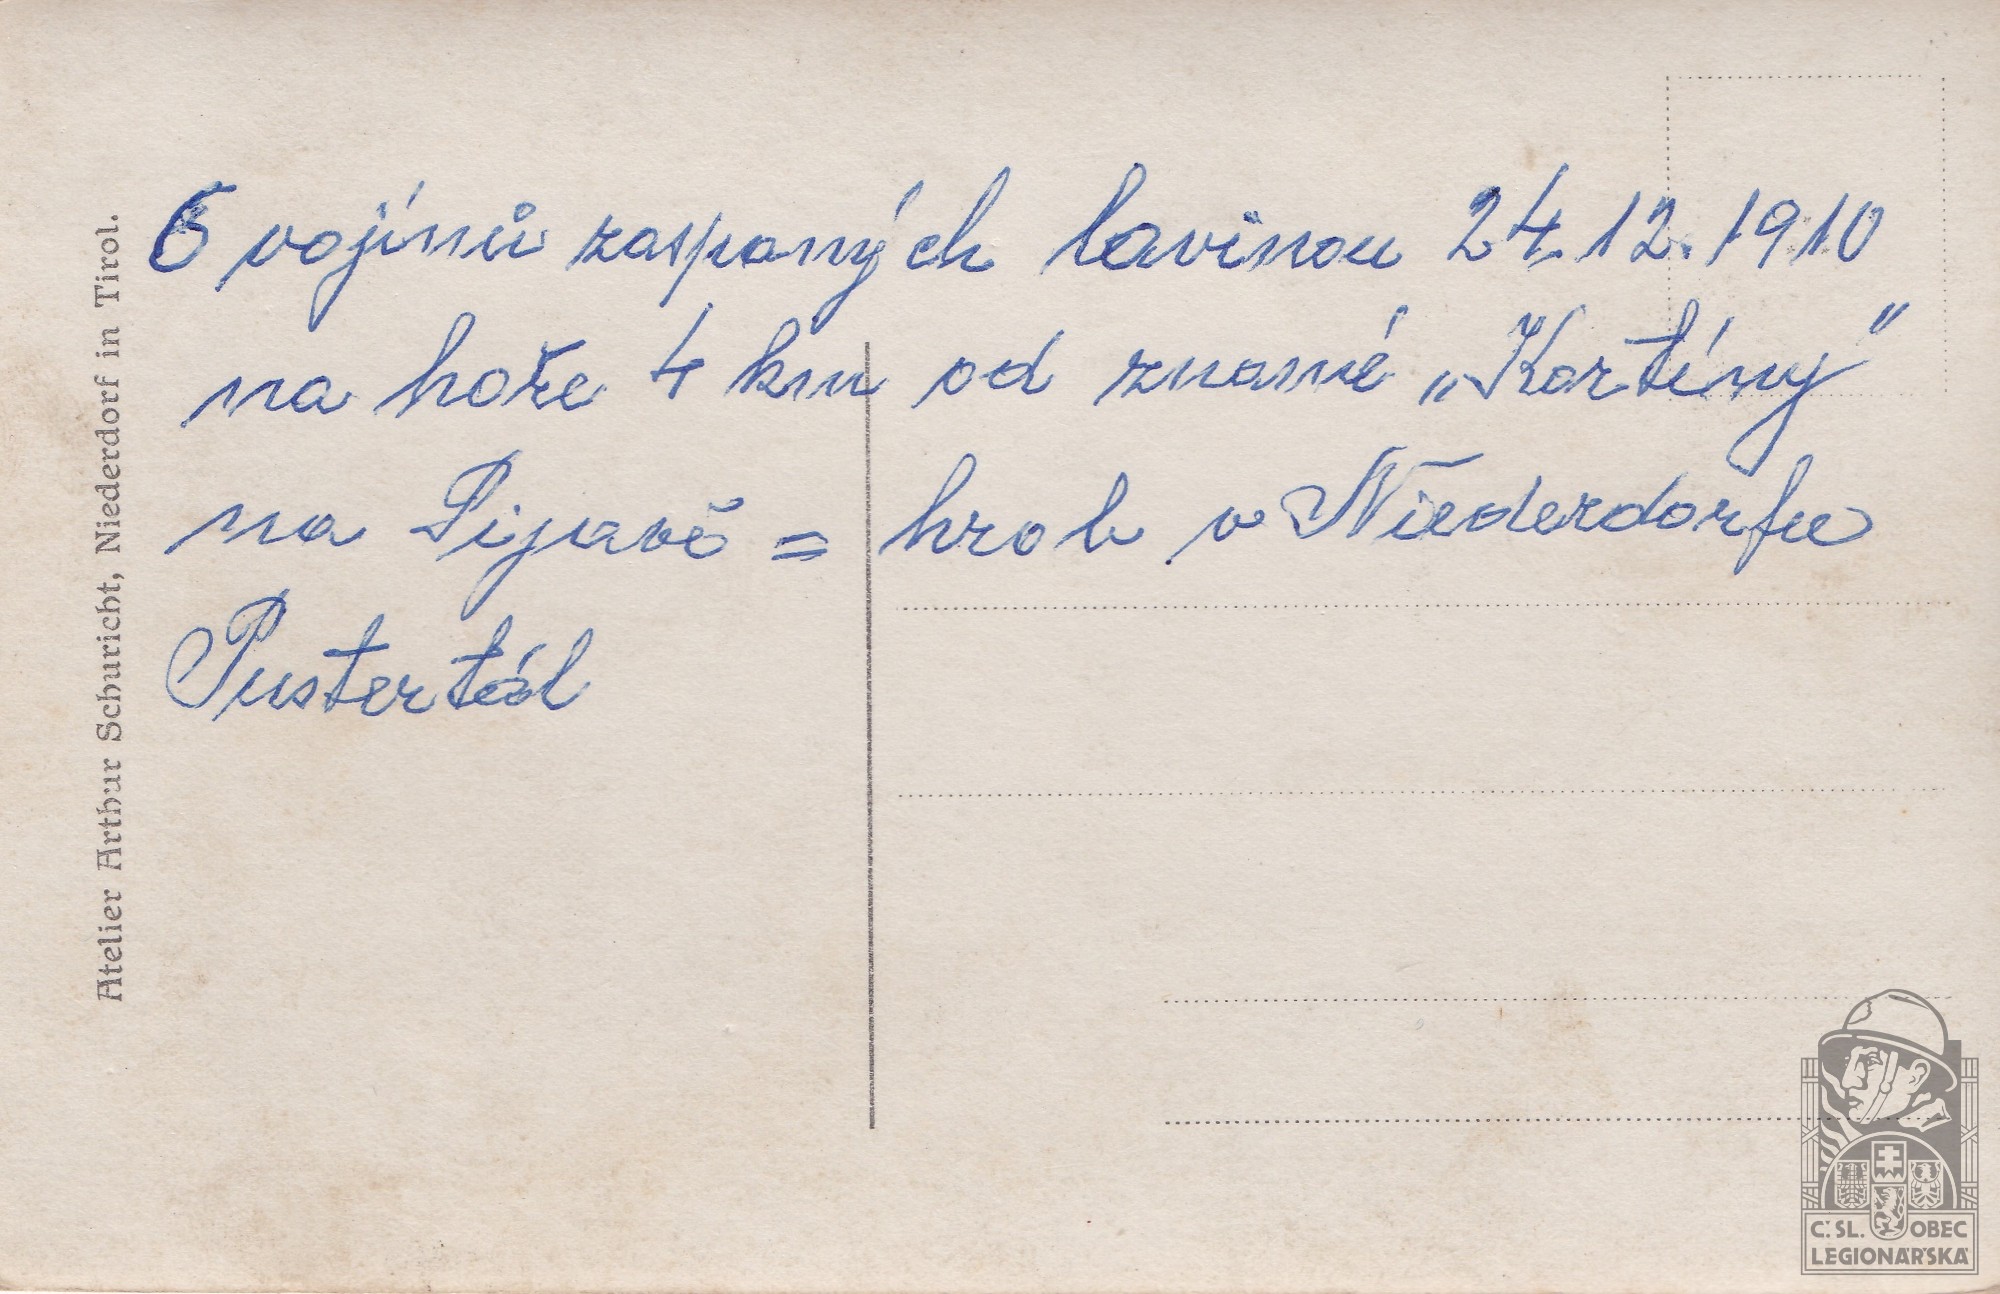 6 vojínů zaspaných lavinou 24.12.1910
na hoře 4 km od známé „Kortýny"
na Pijavě = hrob v Niederdorfu
Pustertál
Atelier Arthur Schuricht, Niederdorf in Tirol.
Č.SL. OBEC
LEGIONÁŘSKÁ